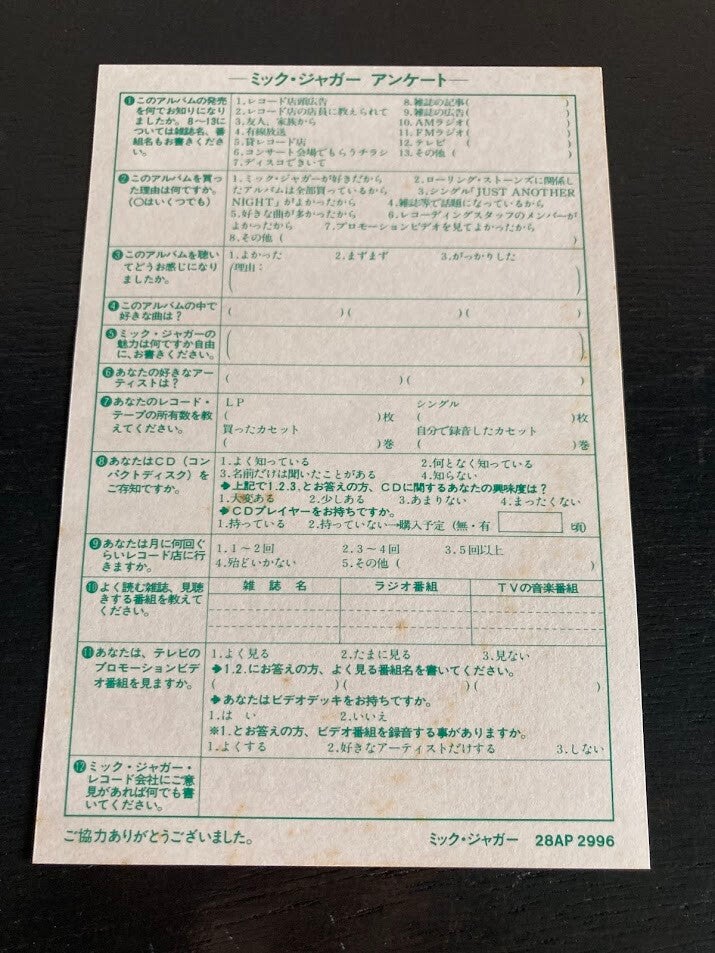 ミック・ジャガー アンケート
❶このアルバムの発売を何でお知りになりましたか。8〜13については雑誌名、番組名もお書きください。
1.レコード店頭広告 8.雑誌の記事( )
2.レコード店の店員に教えられて 9.雑誌の広告( )
3.友人、家族から 10.AMラジオ( )
4.有線放送 11.FMラジオ( )
5.貸レコード店 12.テレビ ( )
6.コンサート会場でもらうチラシ 13.その他 ( )
7.ディスコできいて
❷このアルバムを買った理由は何ですか。(○はいくつでも)
1.ミック・ジャガーが好きだから 2.ローリング・ストーンズに関係し
たアルバムは全部買っているから 3.シングル「JUST ANOTHER
NIGHT」がよかったから 4.雑誌等で話題になっているから
5.好きな曲が多かったから 6.レコーディングスタッフのメンバーが
よかったから 7.プロモーションビデオを見てよかったから
8.その他 ( )
❸このアルバムを聴いてどうお感じになりましたか。
1.よかった 2.まずまず 3.がっかりした
(理由: )
❹このアルバムの中で好きな曲は?
( )( )( )
❺ミック・ジャガーの魅力は何ですか自由に、お書きください。
( )
❻あなたの好きなアーティストは?
( )( )
❼あなたのレコード・テープの所有数を教えてください。
LP シングル
( )枚 ( )枚
買ったカセット 自分で録音したカセット
( )巻 ( )巻
❽あなたはCD(コンパクトディスク)をご存知ですか。
1.よく知っている 2.何となく知っている
3.名前だけは聞いたことがある 4.知らない
➔上記で1.2.3.とお答えの方、CDに関するあなたの興味度は?
1.大変ある 2.少しある 3.あまりない 4.まったくない
➔CDプレイヤーをお持ちですか。
1.持っている 2.持っていない→購入予定(無・有 頃)
❾あなたは月に何回ぐらいレコード店に行きますか。
1.1〜2回 2.3〜4回 3.5回以上
4.殆どいかない 5.その他( )
❿よく読む雑誌、見聴きする番組を教えてください。
雑誌名 ラジオ番組 TVの音楽番組
⓫あなたは、テレビのプロモーションビデオ番組を見ますか。
1.よく見る 2.たまに見る 3.見ない
➔1.2.にお答えの方、よく見る番組名を書いてください。
( )( )( )
➔あなたはビデオデッキをお持ちですか。
1.は い 2.いいえ
※1.とお答えの方、ビデオ番組を録音する事がありますか。
1.よくする 2.好きなアーティストだけする 3.しない
⓬ミック・ジャガー・レコード会社にご意見があれば何でも書いてください。
ご協力ありがとうございました。 ミック・ジャガー 28AP 2996